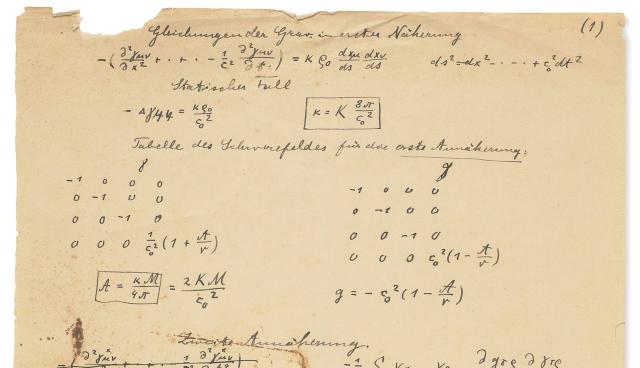 Gleichungen der Grav. in erster Näherung (1)
-(∂²γμν/∂x² + · + · - 1/c² ∂²γμν/∂t²) = κ ρ₀ dxμ/ds dxν/ds ds² = dx² - · · · + c₀² dt²
Statischer Fall
- Δγ44 = κρ₀/c₀² κ = K 8π/c₀²
Tabelle des Schwerefeldes für die erste Annäherung:
γ g
-1 0 0 0 -1 0 0 0
0 -1 0 0 0 -1 0 0
0 0 -1 0 0 0 -1 0
0 0 0 1/c₀² (1 + A/r) 0 0 0 c₀² (1 - A/r)
A = κM/4π = 2KM/c₀² g = - c₀² (1 - A/r)
Zweite Annäherung.